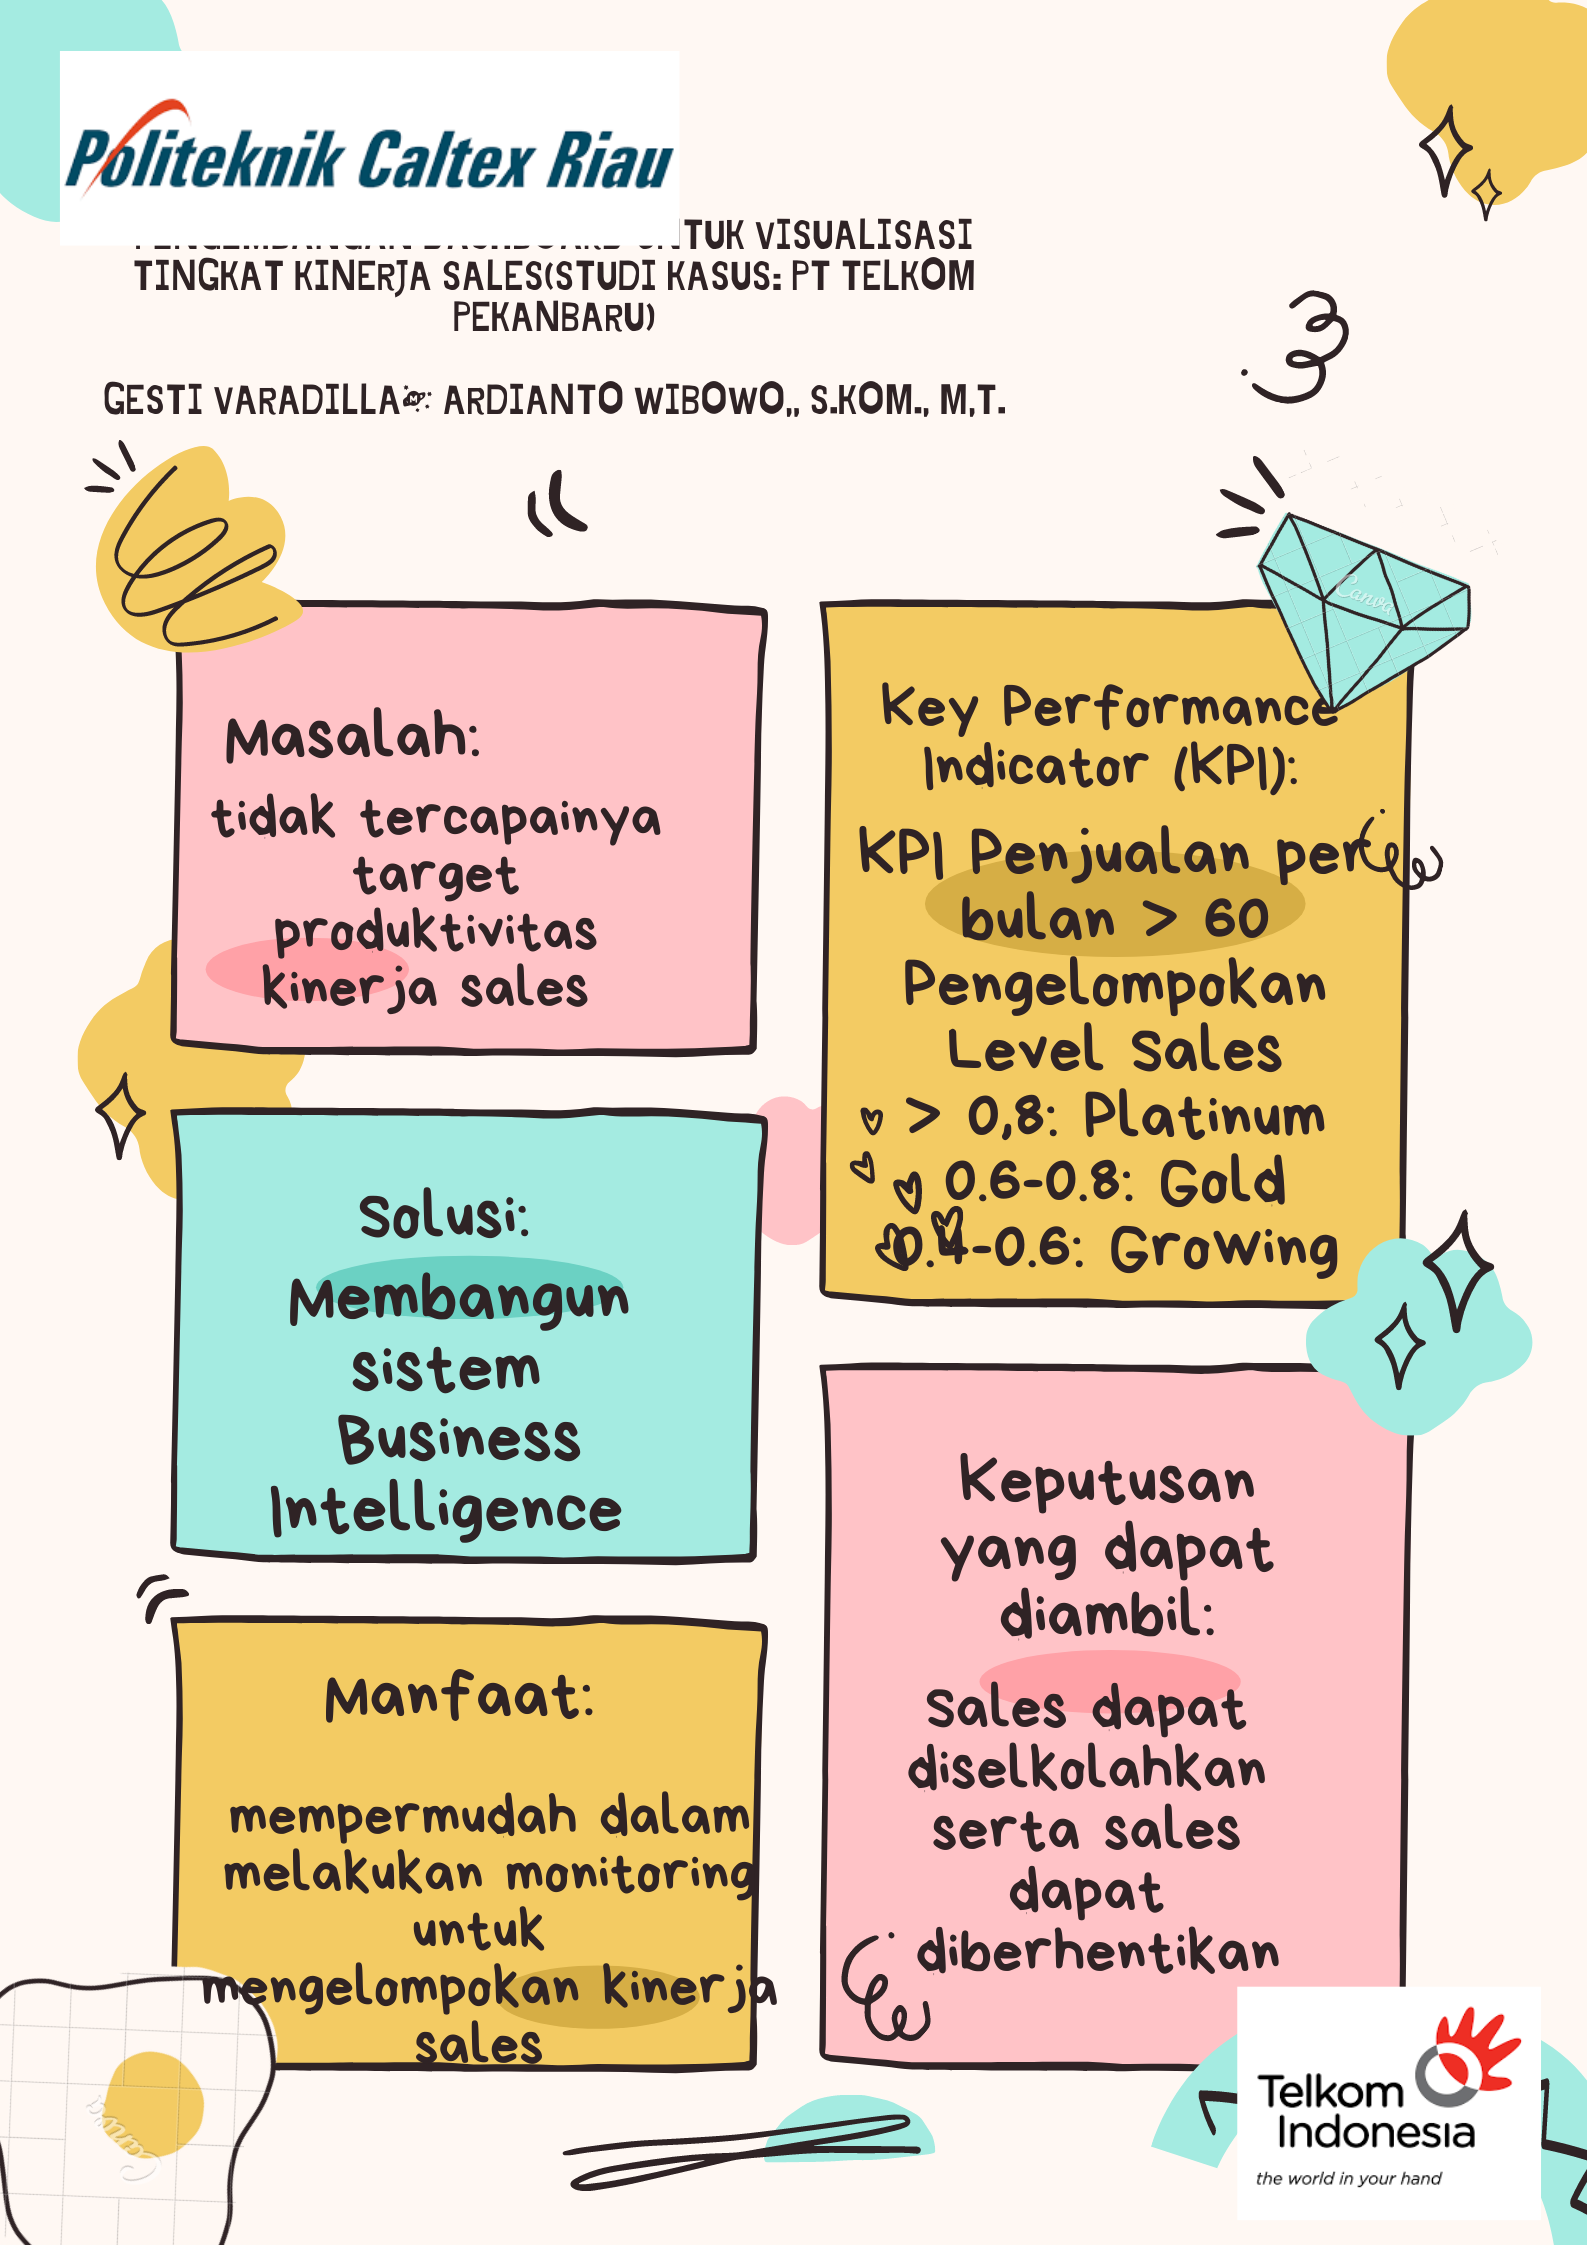 Politeknik Caltex Riau
PENGEMBANGAN DASHBOARD UNTUK VISUALISASI
TINGKAT KINERJA SALES(STUDI KASUS: PT TELKOM
PEKANBARU)
GESTI VARADILLA ARDIANTO WIBOWO,, S.KOM., M,T.
Masalah:
tidak tercapainya
target
produktivitas
kinerja sales
Solusi:
Membangun
sistem
Business
Intelligence
Manfaat:
mempermudah dalam
melakukan monitoring
untuk
mengelompokan kinerja
sales
Canva
Key Performance
Indicator (KPI):
KPI Penjualan per
bulan > 60
Pengelompokan
Level Sales
> 0,8: Platinum
0.6-0.8: Gold
0.4-0.6: Growing
Canva
Keputusan
yang dapat
diambil:
Sales dapat
diselkolahkan
serta sales
dapat
diberhentikan
Telkom
Indonesia
the world in your hand